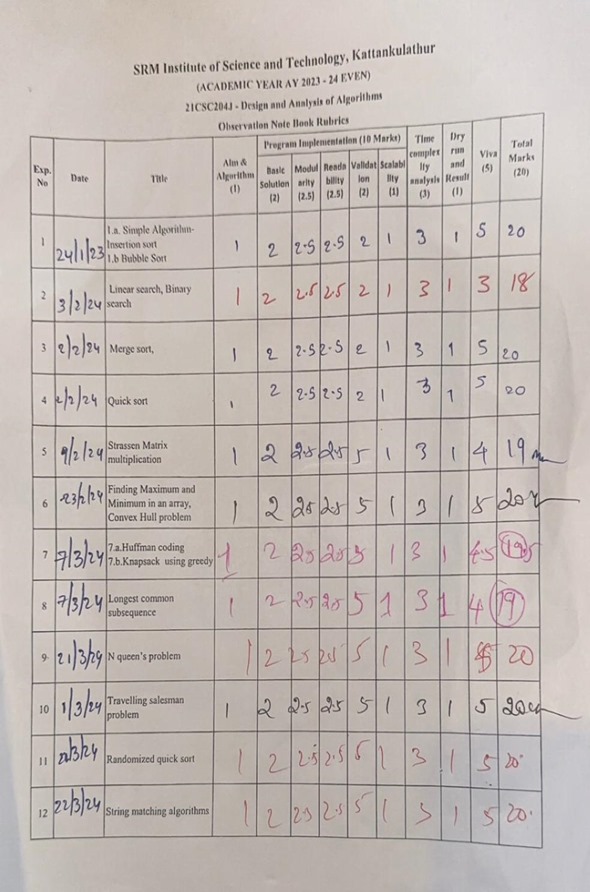 SRM Institute of Science and Technology, Kattankulathur
(ACADEMIC YEAR AY 2023 - 24 EVEN)
21CSC204J - Design and Analysis of Algorithms
Observation Note Book Rubrics
Exp. No Date Title Aim & Algorithm (1) Program Implementation (10 Marks) Basic Solution (2) Modul arity (2.5) Reada bility (2.5) Validat ion (2) Scalabi lity (1) Time complex ity analysis (3) Dry run and Result (1) Viva (5) Total Marks (20)
1 24/1/23 1.a. Simple Algorithm- Insertion sort 1.b Bubble Sort 1 2 2.5 2.5 2 1 3 1 5 20
2 3/2/24 Linear search, Binary search 1 2 2.5 2.5 2 1 3 1 3 18
3 2/2/24 Merge sort, 1 2 2.5 2.5 2 1 3 1 5 20
4 2/2/24 Quick sort 1 2 2.5 2.5 2 1 3 1 5 20
5 9/2/24 Strassen Matrix multiplication 1 2 2.5 2.5 5 1 3 1 4 19
6 23/2/24 Finding Maximum and Minimum in an array, Convex Hull problem 1 2 2.5 2.5 5 1 3 1 5 20
7 7/3/24 7.a.Huffman coding 7.b.Knapsack using greedy 1 2 2.5 2.5 5 1 3 1 4.5 19.5
8 7/3/24 Longest common subsequence 1 2 2.5 2.5 5 1 3 1 4 19
9 21/3/24 N queen's problem 1 2 2.5 2.5 5 1 3 1 5 20
10 1/3/24 Travelling salesman problem 1 2 2.5 2.5 5 1 3 1 5 20
11 22/3/24 Randomized quick sort 1 2 2.5 2.5 5 1 3 1 5 20
12 22/3/24 String matching algorithms 1 2 2.5 2.5 5 1 3 1 5 20